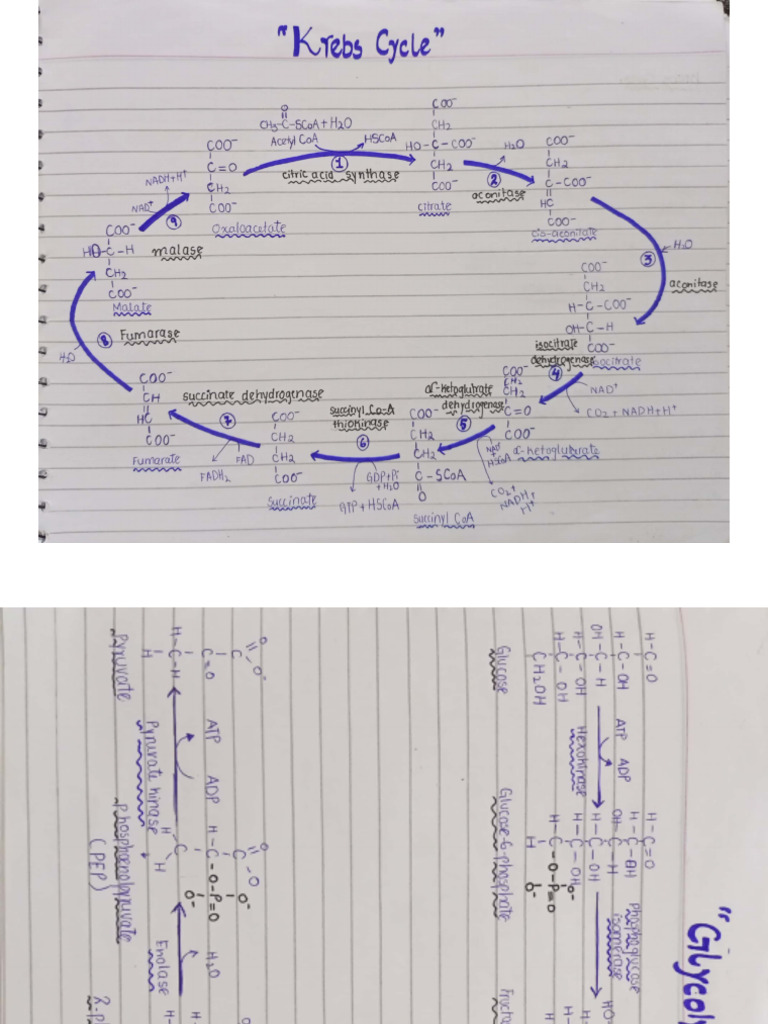 "Krebs Cycle"
O
CH₃-C-SCoA+H₂O
Acetyl CoA
HSCoA
①
citric acid synthase
COO⁻
C=O
CH₂
COO⁻
Oxaloacetate
COO⁻
CH₂
HO-C-COO⁻
CH₂
COO⁻
citrate
H₂O
②
aconitase
COO⁻
CH₂
C-COO⁻
HC
COO⁻
Cis-aconitate
③
H₂O
aconitase
COO⁻
CH₂
H-C-COO⁻
OH-C-H
COO⁻
isocitrate
isocitrate
dehydrogenase
④
NAD⁺
CO₂ + NADH+H⁺
COO⁻
CH₂
CH₂
C=O
COO⁻
α-ketoglutrate
α-ketoglutrate
dehydrogenase
⑤
NAD⁺
+
HSCoA
CO₂+
NADH+
H⁺
COO⁻
CH₂
CH₂
C-SCoA
O
Succinyl CoA
succinyl CoA
thiokinase
⑥
GDP+Pi
+H₂O
GTP + HSCoA
COO⁻
CH₂
CH₂
COO⁻
Succinate
succinate dehydrogenase
⑦
FAD
FADH₂
COO⁻
CH
HC
COO⁻
Fumarate
⑧ Fumarase
H₂O
COO⁻
HO-C-H
CH₂
COO⁻
Malate
malase
⑨
NAD⁺
NADH+H⁺
"Glycol
H-C=O
H-C-OH
OH-C-H
H-C-OH
H-C-OH
CH₂OH
Glucose
ATP ADP
Hexokinase
H-C=O
H-C-OH
OH-C-H
H-C-OH
H-C-OH
H-C-O-P=O
H
O⁻
O⁻
Glucose-6-phosphate
Phosphoglucose
isomerase
HO
Fructos
O
C-O⁻
C=O
H-C-H
H
Pyruvate
ATP ADP
Pyruvate kinase
O
C-O
H-C-O-P=O
O⁻
O⁻
C
H H
Phosphoenolpyruvate
(PEP)
H₂O
Enolase
2-p